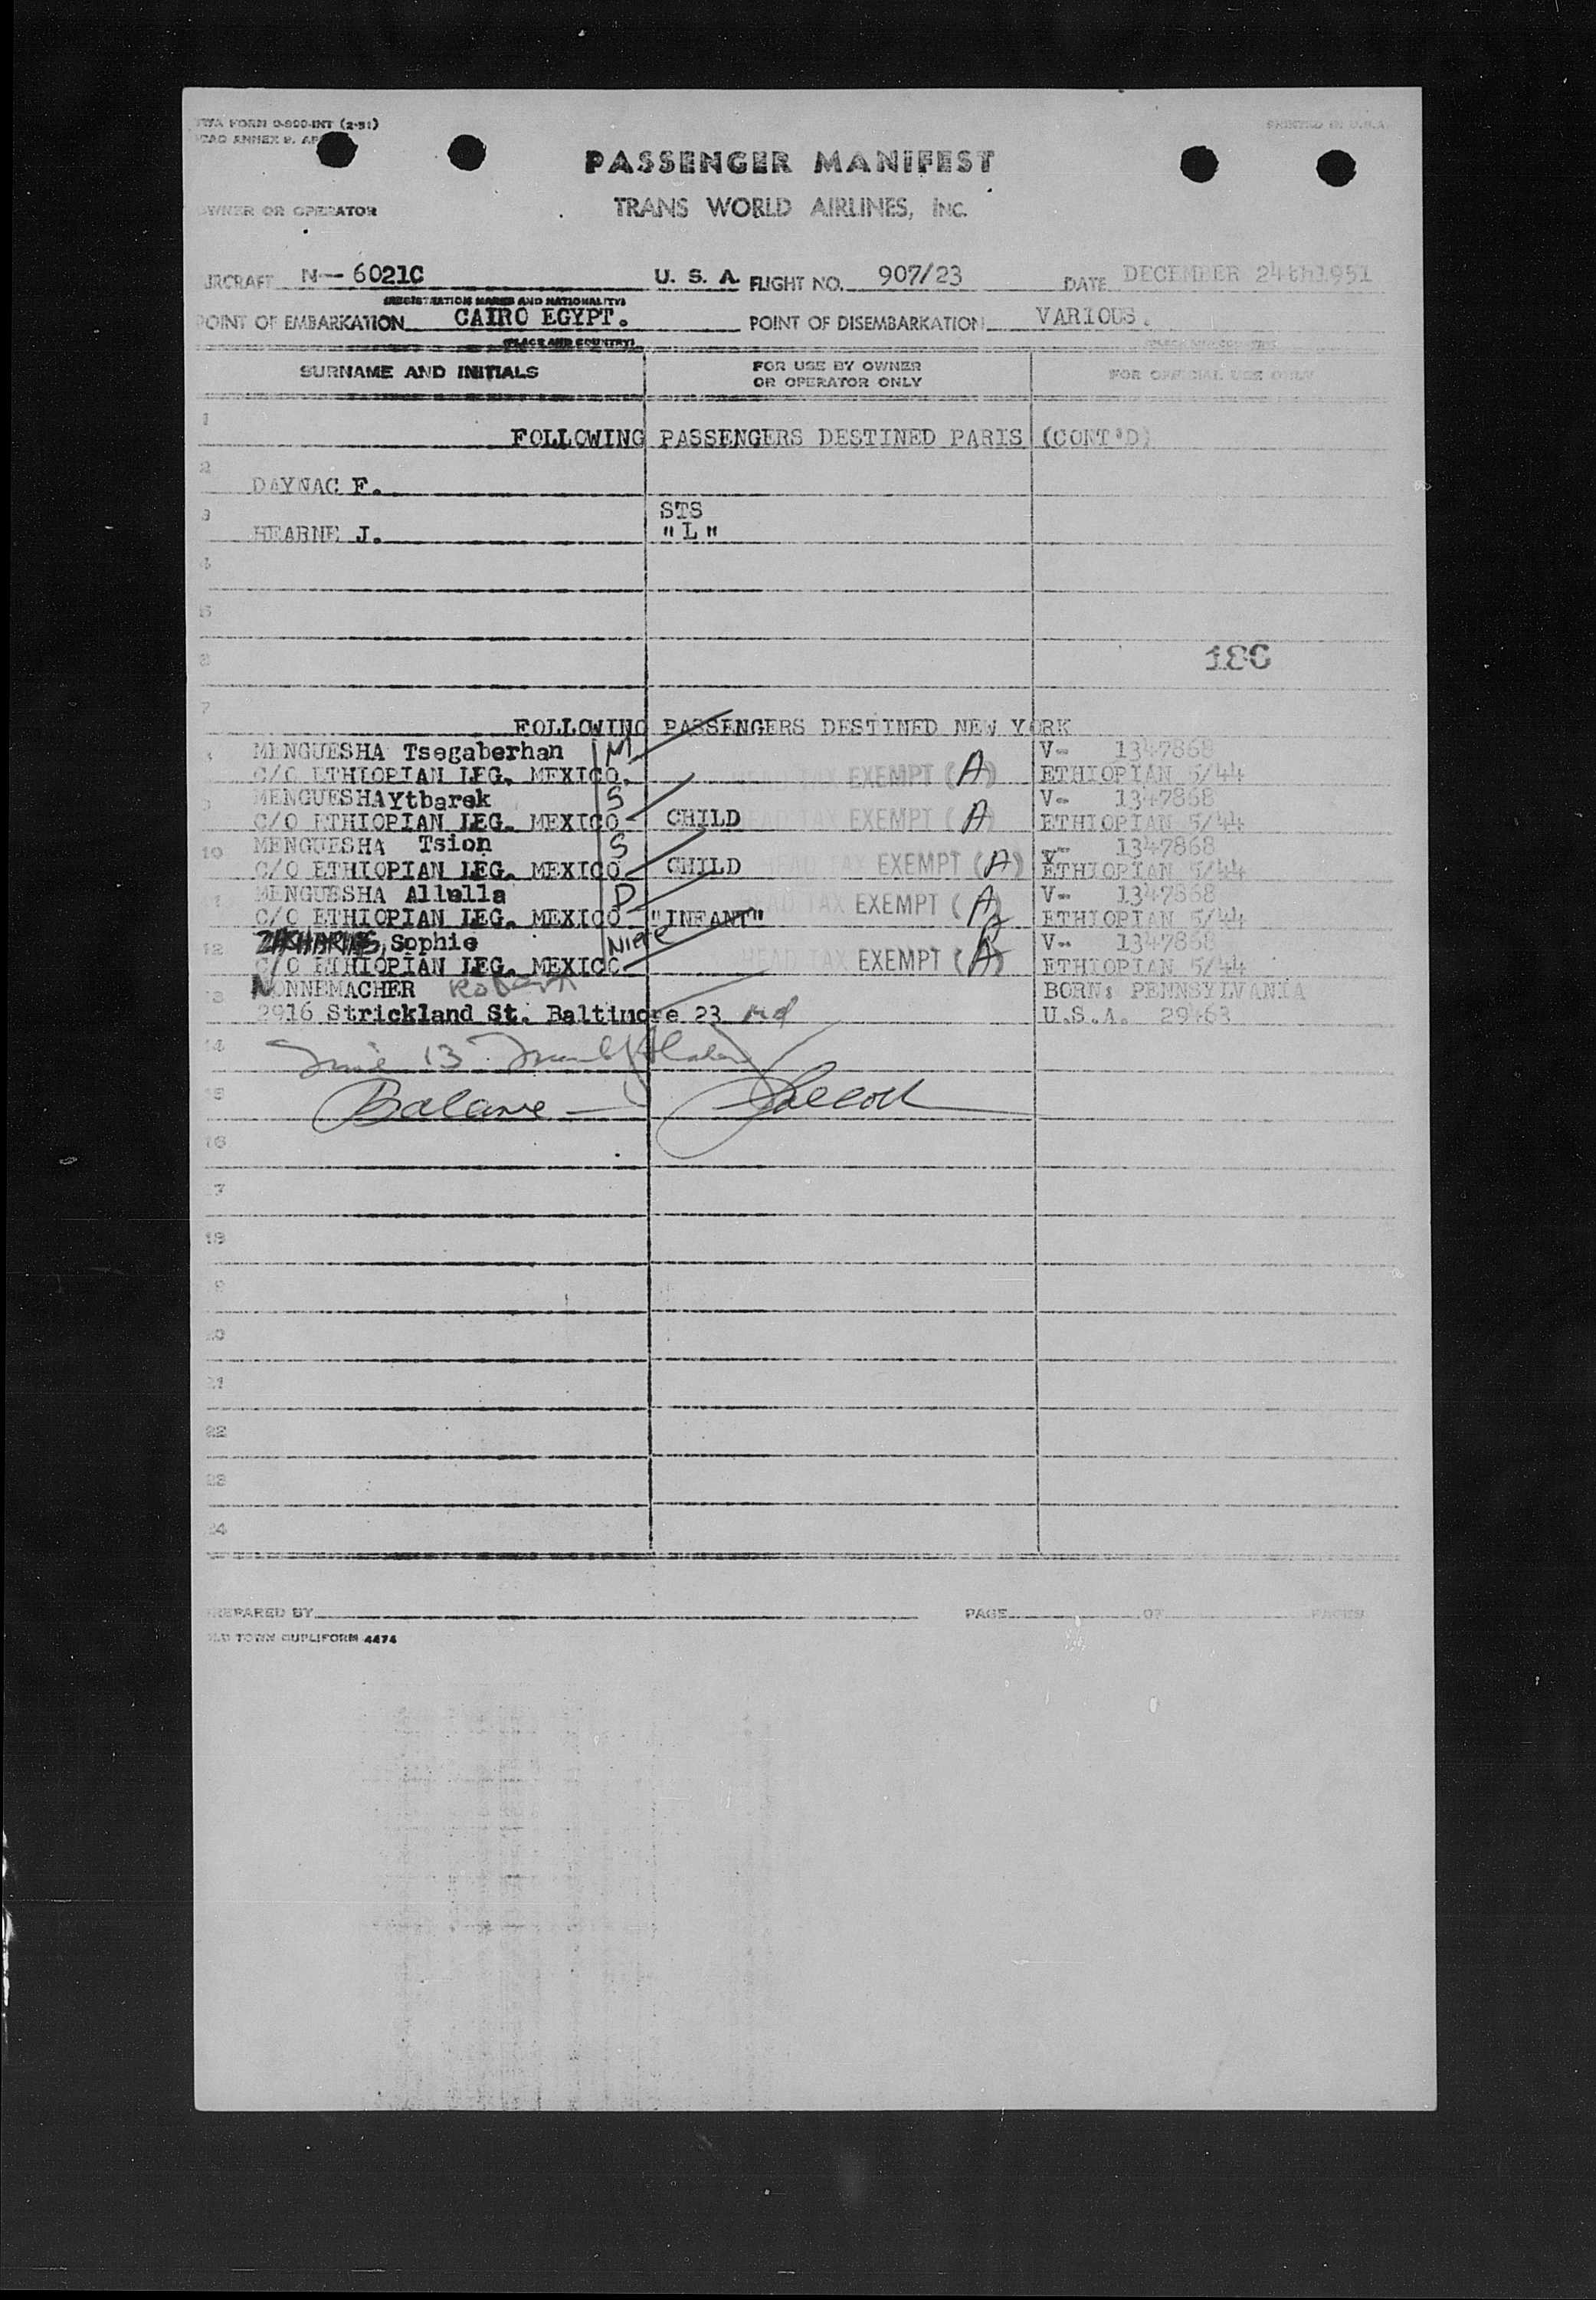 TWA FORM 0-800-INT (2-51) PRINTED IN U.S.A.
ICAO ANNEX 9. AP
PASSENGER MANIFEST
OWNER OR OPERATOR TRANS WORLD AIRLINES, INC.
AIRCRAFT N-6021C U. S. A. FLIGHT NO. 907/23 DATE DECEMBER 24th1951
(REGISTRATION MARKS AND NATIONALITY)
POINT OF EMBARKATION CAIRO EGYPT. POINT OF DISEMBARKATION VARIOUS.
(PLACE AND COUNTRY) (PLACE AND COUNTRY)
SURNAME AND INITIALS FOR USE BY OWNER OR OPERATOR ONLY FOR OFFICIAL USE ONLY
1 FOLLOWING PASSENGERS DESTINED PARIS (CONT'D)
2 DAYNAC F.
3 HEARNE J. STS "L"
4
5
6 186
7 FOLLOWING PASSENGERS DESTINED NEW YORK
8 MENGUESHA Tsegaberhan M V- 1347868
C/O ETHIOPIAN LEG. MEXICO. HEAD TAX EXEMPT (A) ETHIOPIAN 5/44
9 MENGUESHAYtbarek S V- 1347868
C/O ETHIOPIAN LEG. MEXICO CHILD HEAD TAX EXEMPT (A) ETHIOPIAN 5/44
10 MENGUESHA Tsion S V- 1347868
C/O ETHIOPIAN LEG. MEXICO CHILD HEAD TAX EXEMPT (A) ETHIOPIAN 5/44
11 MENGUESHA Allella D V- 1347868
C/O ETHIOPIAN LEG. MEXICO "INFANT" HEAD TAX EXEMPT (A) ETHIOPIAN 5/44
12 ZACHARIAS, Sophie Niece V- 1347868
C/O ETHIOPIAN LEG. MEXICO HEAD TAX EXEMPT (A) ETHIOPIAN 5/44
13 NONNEMACHER Robert BORN: PENNSYLVANIA
2916 Strickland St. Baltimore 23 Md U.S.A. 29463
14 13
15 Balance
16
17
18
19
20
21
22
23
24
PREPARED BY PAGE OF PAGES
OLD TOWN DUPLIFORM 4474